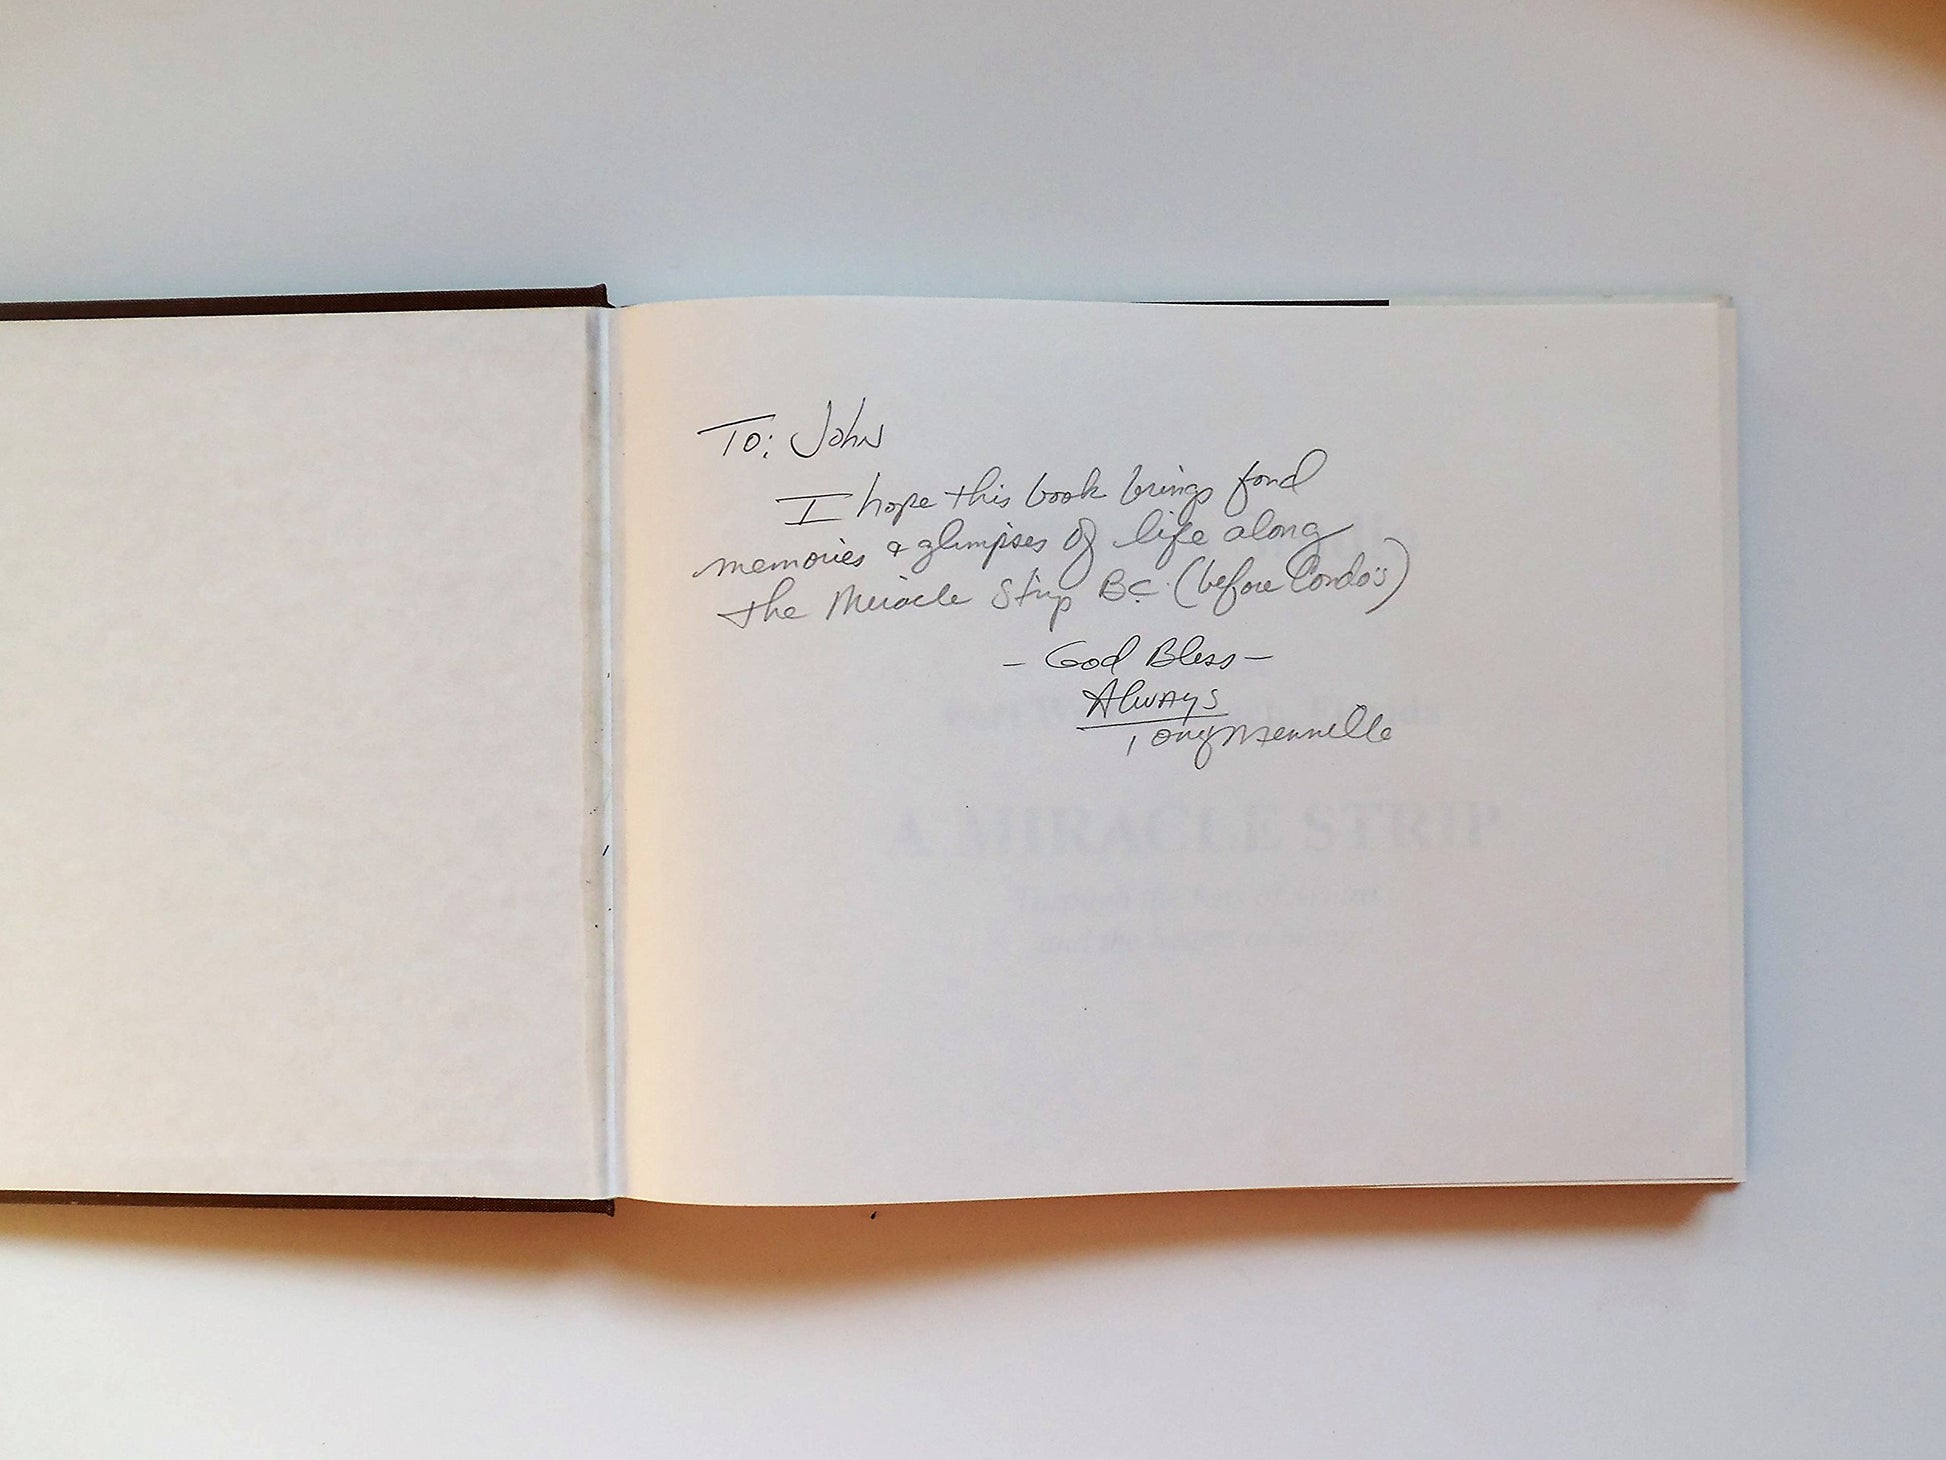 To: John
I hope this book brings fond
memories & glimpses of life along
the Miracle Strip B.C. (before Condo's)
- God Bless -
Always
Tony Mennillo
A MIRACLE STRIP
Through the Eyes of
and the